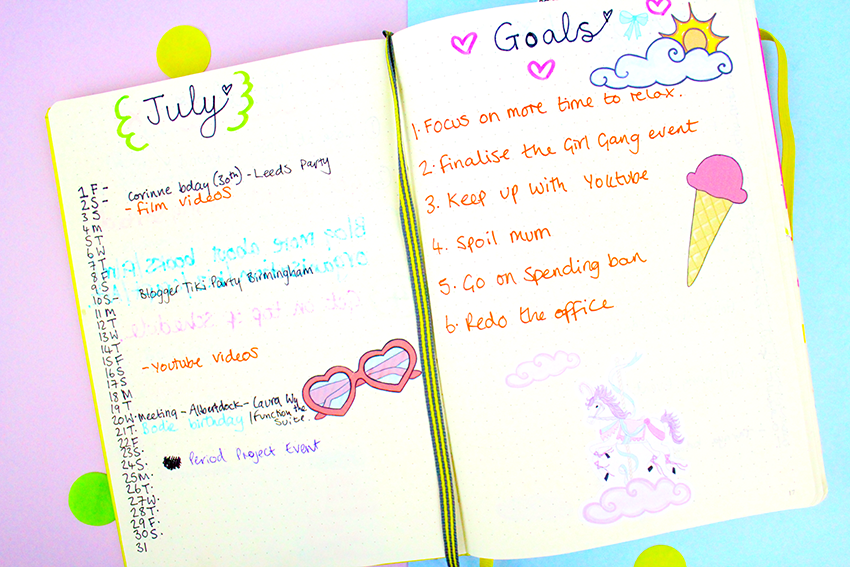 July
1 F - Corinne bday (30th) - Leeds Party
2 S - - film videos
3 S
4 M
5 T
6 W
7 T
8 F
9 S
10 S - Blogger Tiki Party Birmingham
11 M
12 T
13 W
14 T
15 F - Youtube videos
16 S
17 S
18 M
19 T
20 W. meeting - Albertdock - Laura Wy
21 T. Bodie birthday / Function the Suite.
22 F
23 S.
24 S. Period Project Event
25 M.
26 T.
27 W.
28 T.
29 F.
30 S.
31
Goals
1. Focus on more time to relax.
2. Finalise the Girl Gang event
3. Keep up with Youtube
4. Spoil mum
5. Go on spending ban
6. Redo the office